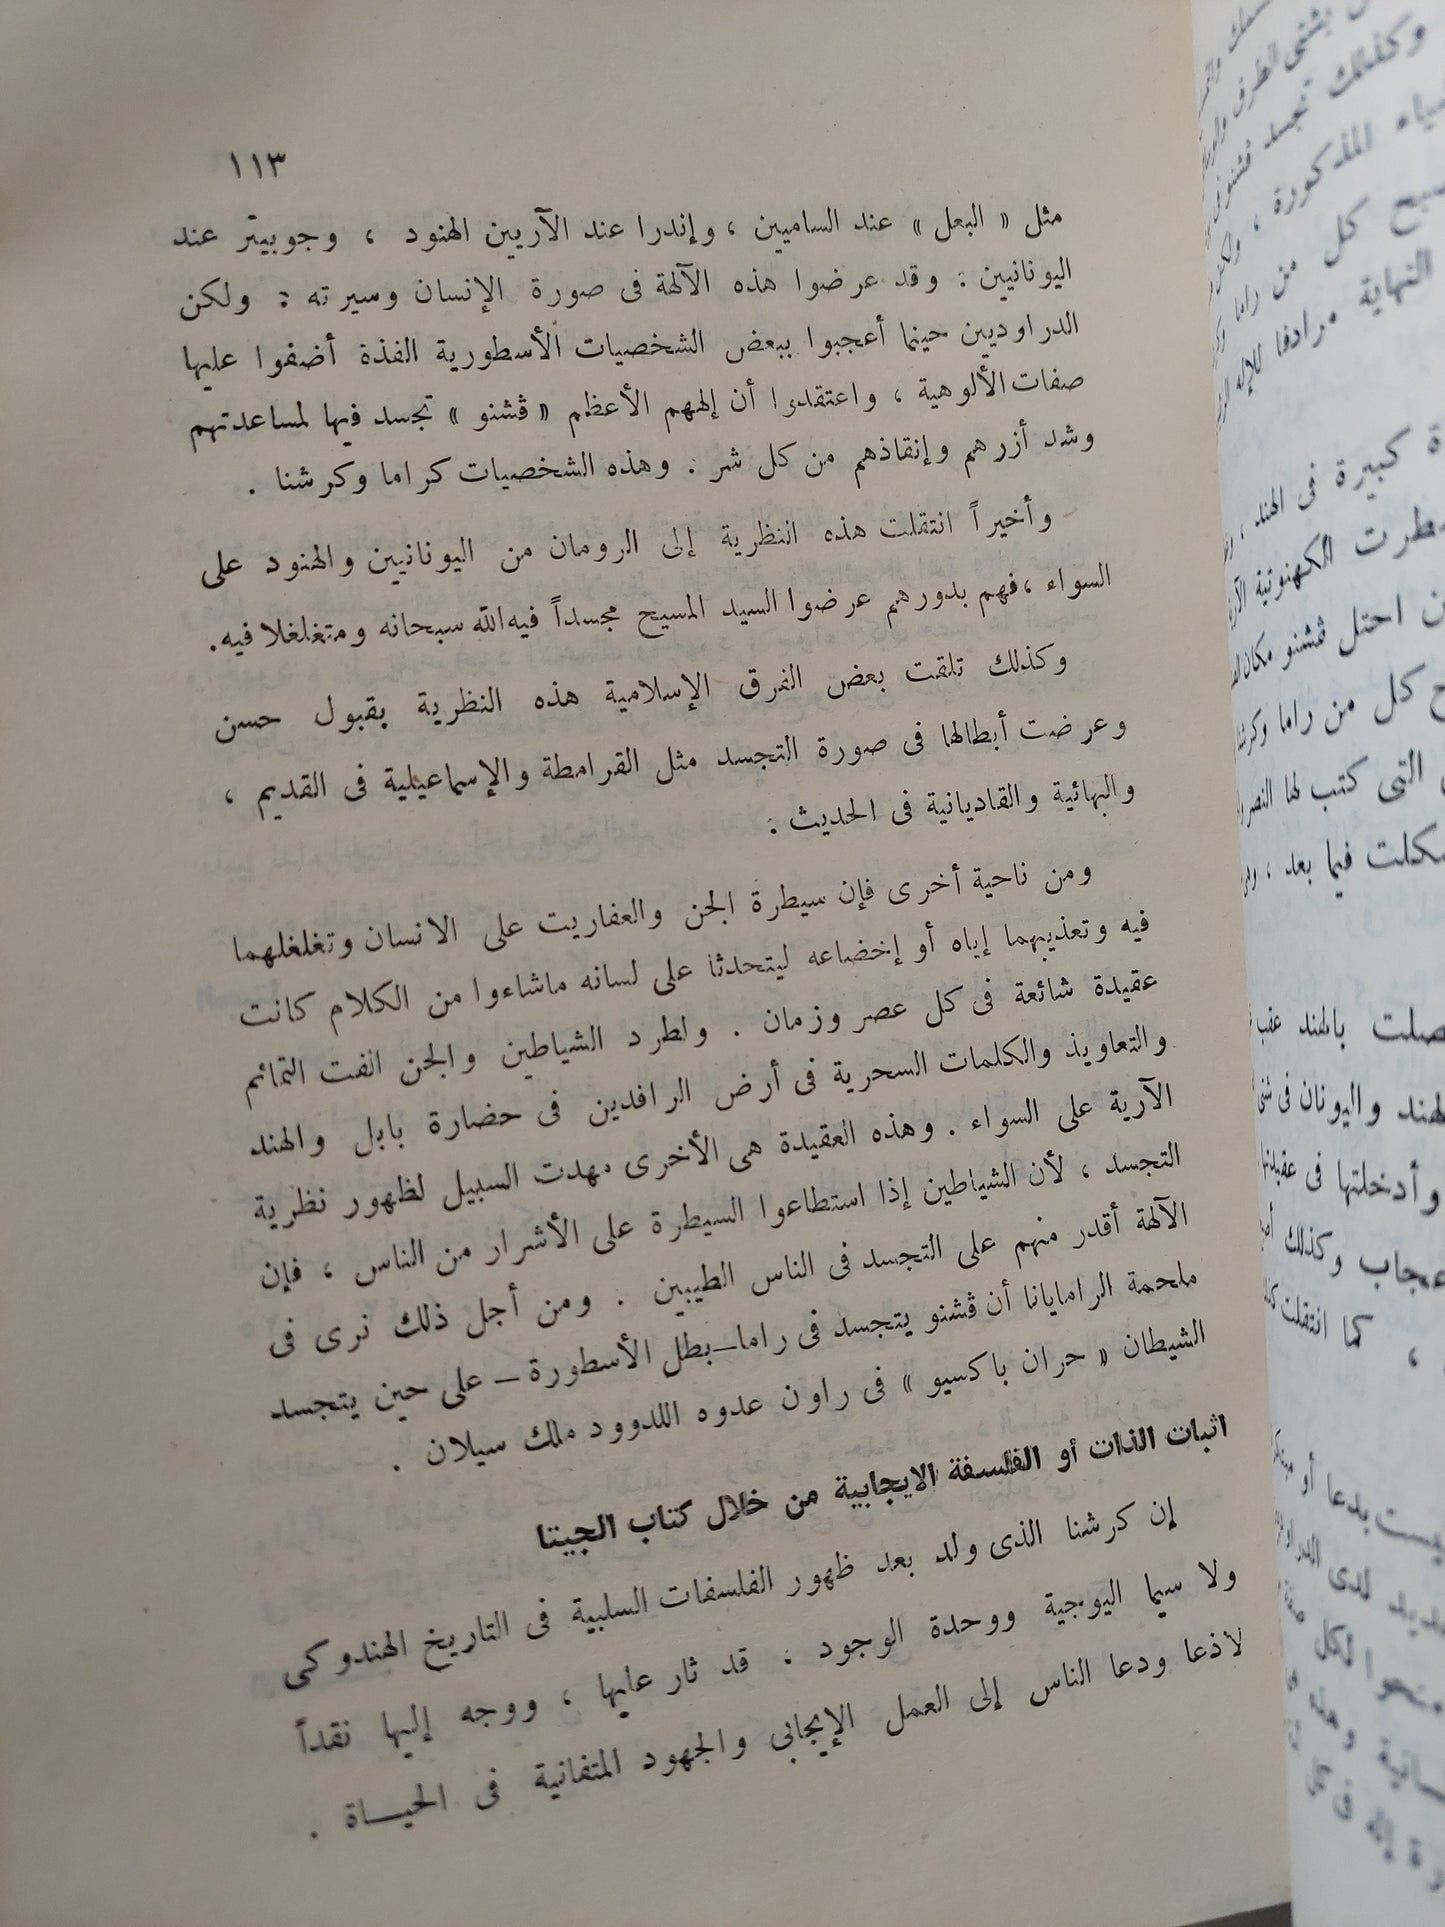 ١١٣
مثل « البعل » عند الساميين ، وإندرا عند الآريين الهنود ، وجوبيتر عند
اليونانيين : وقد عرضوا هذه الآلهة فى صورة الإنسان وسيرته : ولكن
الدراوديين حينما أعجبوا ببعض الشخصيات الأسطورية الفذة أضفوا عليها
صفات الألوهية ، واعتقدوا أن إلههم الأعظم « ڤشنو » تجسد فيها لمساعدتهم
وشد أزرهم وإنقاذهم من كل شر . وهذه الشخصيات كراما وكرشنا .
وأخيراً انتقلت هذه النظرية إلى الرومان من اليونانيين والهنود على
السواء ،فهم بدورهم عرضوا السيد المسيح مجسداً فيه الله سبحانه ومتغلغلا فيه.
وكذلك تلقت بعض الفرق الإسلامية هذه النظرية بقبول حسن
وعرضت أبطالها فى صورة التجسد مثل القرامطة والإسماعيلية فى القديم ،
والبهائية والقاديانية فى الحديث :
ومن ناحية أخرى فإن سيطرة الجن والعفاريت على الانسان وتغلغلهما
فيه وتعذيبهما إياه أو إخضاعه ليتحدثا على لسانه ماشاءوا من الكلام كانت
عقيدة شائعة فى كل عصر وزمان . ولطرد الشياطين والجن الفت التمائم
والتعاويذ والكلمات السحرية فى أرض الرافدين فى حضارة بابل والهند
الآرية على السواء . وهذه العقيدة هى الأخرى مهدت السبيل لظهور نظرية
التجسد ، لأن الشياطين إذا استطاعوا السيطرة على الأشرار من الناس ، فإن
الآلهة أقدر منهم على التجسد فى الناس الطيبين . ومن أجل ذلك نرى فى
ملحمة الرامايانا أن ڤشنو يتجسد فى راما–بطل الأسطورة – على حين يتجسد
الشيطان « حران باكسيو » فى راون عدوه اللدوود ملك سيلان .
اثبات الذات أو الفلسفة الايجابية من خلال كتاب الجيتا
إن كرشنا الذى ولد بعد ظهور الفلسفات السلبية فى التاريخ الهندوكى
ولا سيما اليوجية ووحدة الوجود . قد ثار عليها ، ووجه إليها نقداً
لاذعا ودعا الناس إلى العمل الإيجابى والجهود المتفانية فى الحيـاة .
وكذلك تجسد
المذكورة ،
كل من راما
النهاية مرادفا للإله
كبيرة فى الهند ،
الكهنوتية
احتل ڤشنو مكان
كل من راما
التى كتب لها النصر
فيما بعد ،
بالهند عقب
واليونان فى
وأدخلتها فى
وكذلك
، كما انتقلت
بدعا أو
لدى
لكل